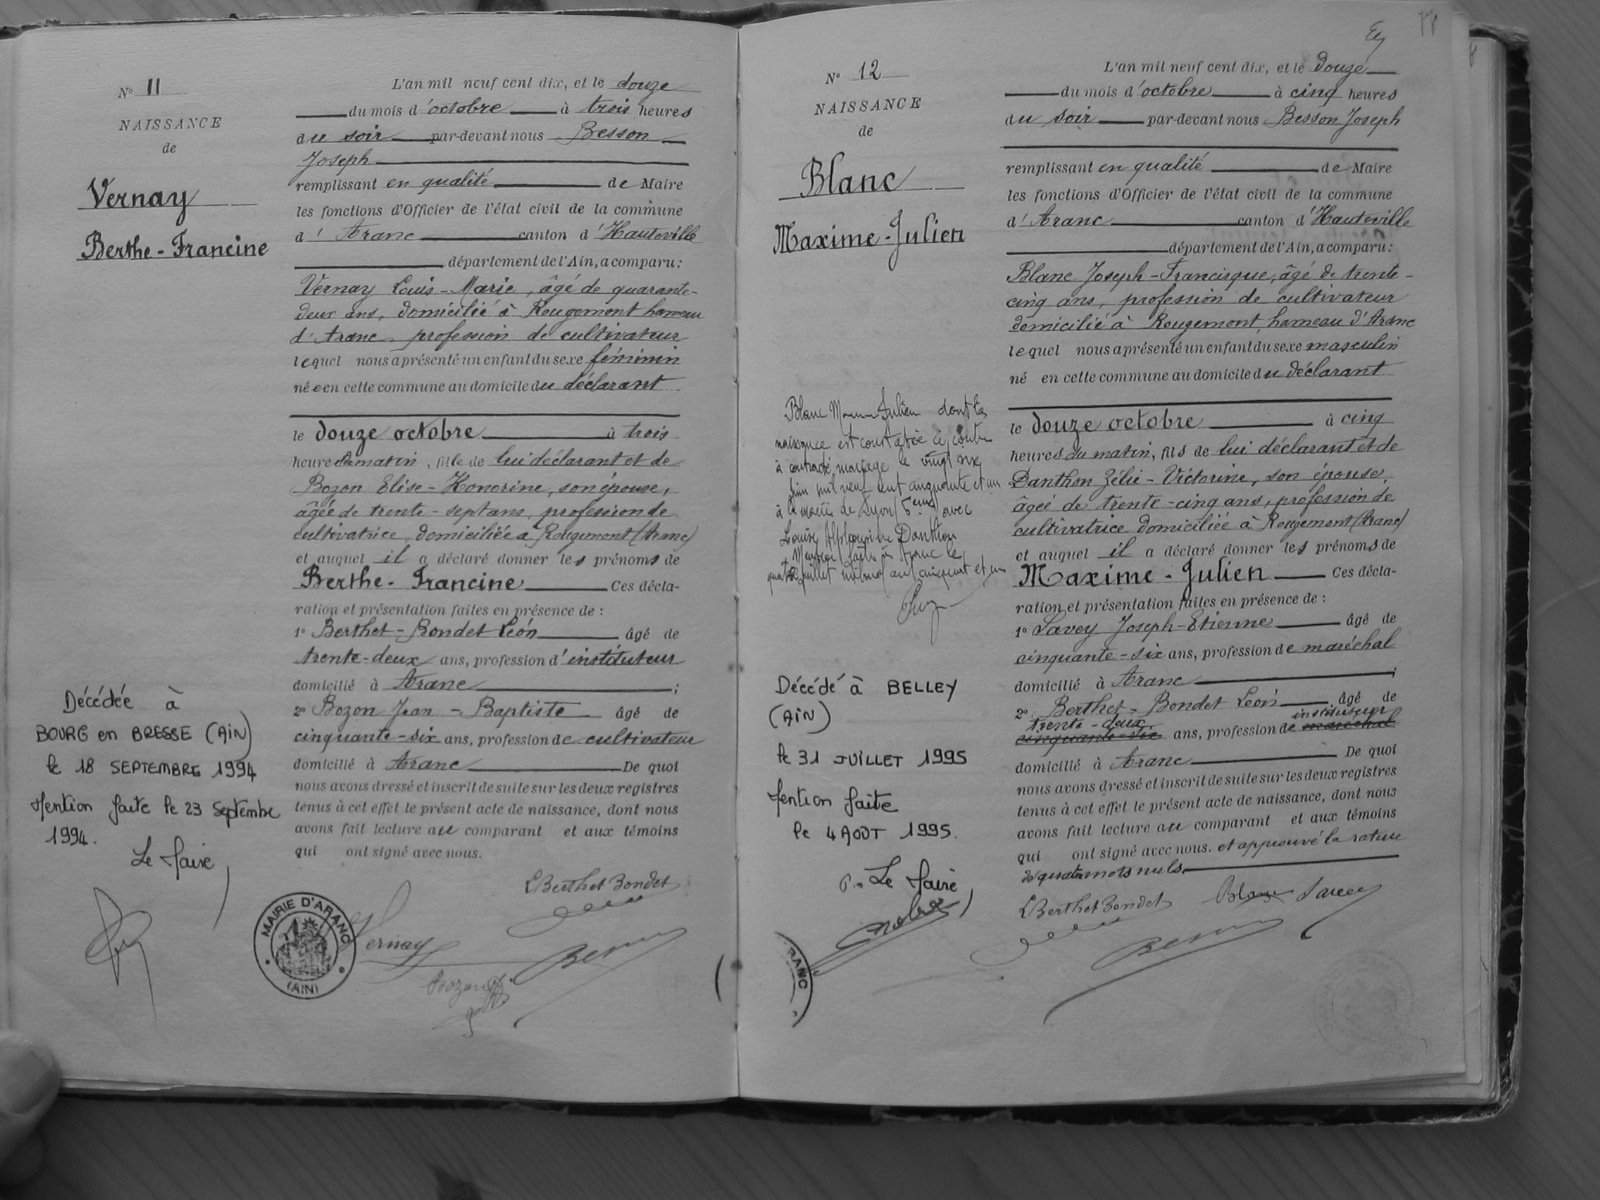 Nº 11
NAISSANCE
de
Vernay
Berthe-Francine
L'an mil neuf cent dix, et le douze
du mois d'octobre à trois heures
du soir par-devant nous Besson
Joseph
remplissant en qualité de Maire
les fonctions d'Officier de l'état civil de la commune
d'Aranc canton d'Hauteville
département de l'Ain, a comparu:
Vernay Louis-Marie, âgé de quarante-
deux ans, domicilié à Rougemont hameau
d'Aranc, profession de cultivateur
lequel nous a présenté un enfant du sexe féminin
née en cette commune au domicile du déclarant
le douze octobre à trois
heures du matin, fille de lui déclarant et de
Bozon Elise-Honorine, son épouse,
âgée de trente-sept ans, profession de
cultivatrice, domiciliée à Rougemont (Aranc)
et auquel il a déclaré donner les prénoms de
Berthe-Francine Ces décla-
ration et présentation faites en présence de :
1º Berthet-Bondet Léon âgé de
trente-deux ans, profession d'instituteur
domicilié à Aranc ;
2º Bozon Jean-Baptiste âgé de
cinquante-six ans, profession de cultivateur
domicilié à Aranc De quoi
nous avons dressé et inscrit de suite sur les deux registres
tenus à cet effet le présent acte de naissance, dont nous
avons fait lecture au comparant et aux témoins
qui ont signé avec nous.
L Berthet Bondet
Vernay
Besson
Décédée à
BOURG en BRESSE (AIN)
le 18 SEPTEMBRE 1994
Mention faite le 23 Septembre
1994.
Le Maire
MAIRIE D'ARANC
(AIN)
Nº 12
NAISSANCE
de
Blanc
Maxime-Julien
L'an mil neuf cent dix, et le douze
du mois d'octobre à cinq heures
du soir par-devant nous Besson Joseph
remplissant en qualité de Maire
les fonctions d'Officier de l'état civil de la commune
d'Aranc canton d'Hauteville
département de l'Ain, a comparu:
Blanc Joseph-Francisque, âgé de trente-
cinq ans, profession de cultivateur
domicilié à Rougemont, hameau d'Aranc
lequel nous a présenté un enfant du sexe masculin
né en cette commune au domicile du déclarant
le douze octobre à cinq
heures du matin, fils de lui déclarant et de
Danthon Zélie-Victorine, son épouse,
âgée de trente-cinq ans, profession de
cultivatrice domiciliée à Rougemont (Aranc)
et auquel il a déclaré donner les prénoms de
Maxime-Julien Ces décla-
ration et présentation faites en présence de :
1º Savey Joseph-Etienne âgé de
cinquante-six ans, profession de maréchal
domicilié à Aranc ;
2º Berthet-Bondet Léon âgé de
trente-deux instituteur
cinquante-six ans, profession de maréchal
domicilié à Aranc De quoi
nous avons dressé et inscrit de suite sur les deux registres
tenus à cet effet le présent acte de naissance, dont nous
avons fait lecture au comparant et aux témoins
qui ont signé avec nous. et approuvé la rature
de quatre mots nuls
L Berthet Bondet Blanc Savey
Besson
Blanc Maxime Julien dont la
naissance est constatée ci contre
à contracté mariage le vingt six
juin mil neuf cent cinquante et un
à la mairie de Lyon 5eme avec
Louise Danthon
Mention faite à Aranc le
quatre juillet mil neuf cent cinquante et un
Décédé à BELLEY
(AIN)
le 31 JUILLET 1995
Mention faite
le 4 AOUT 1995.
P. Le Maire
RANC